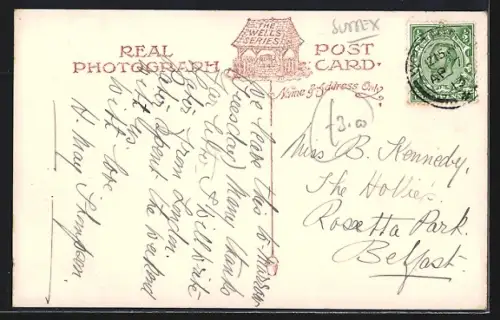 SUSSEX
THE
WELLS
SERIES
REAL
PHOTOGRAPH
POST
CARD.
Name & Address Only
£3.00
We leave this to-morrow
(Tuesday) Many thanks
for letter. I will write
later from London.
spent the weekend
with us.
With love
May Thompson.
Miss B. Kennedy,
The Hollies.
Rosetta Park.
Belfast.